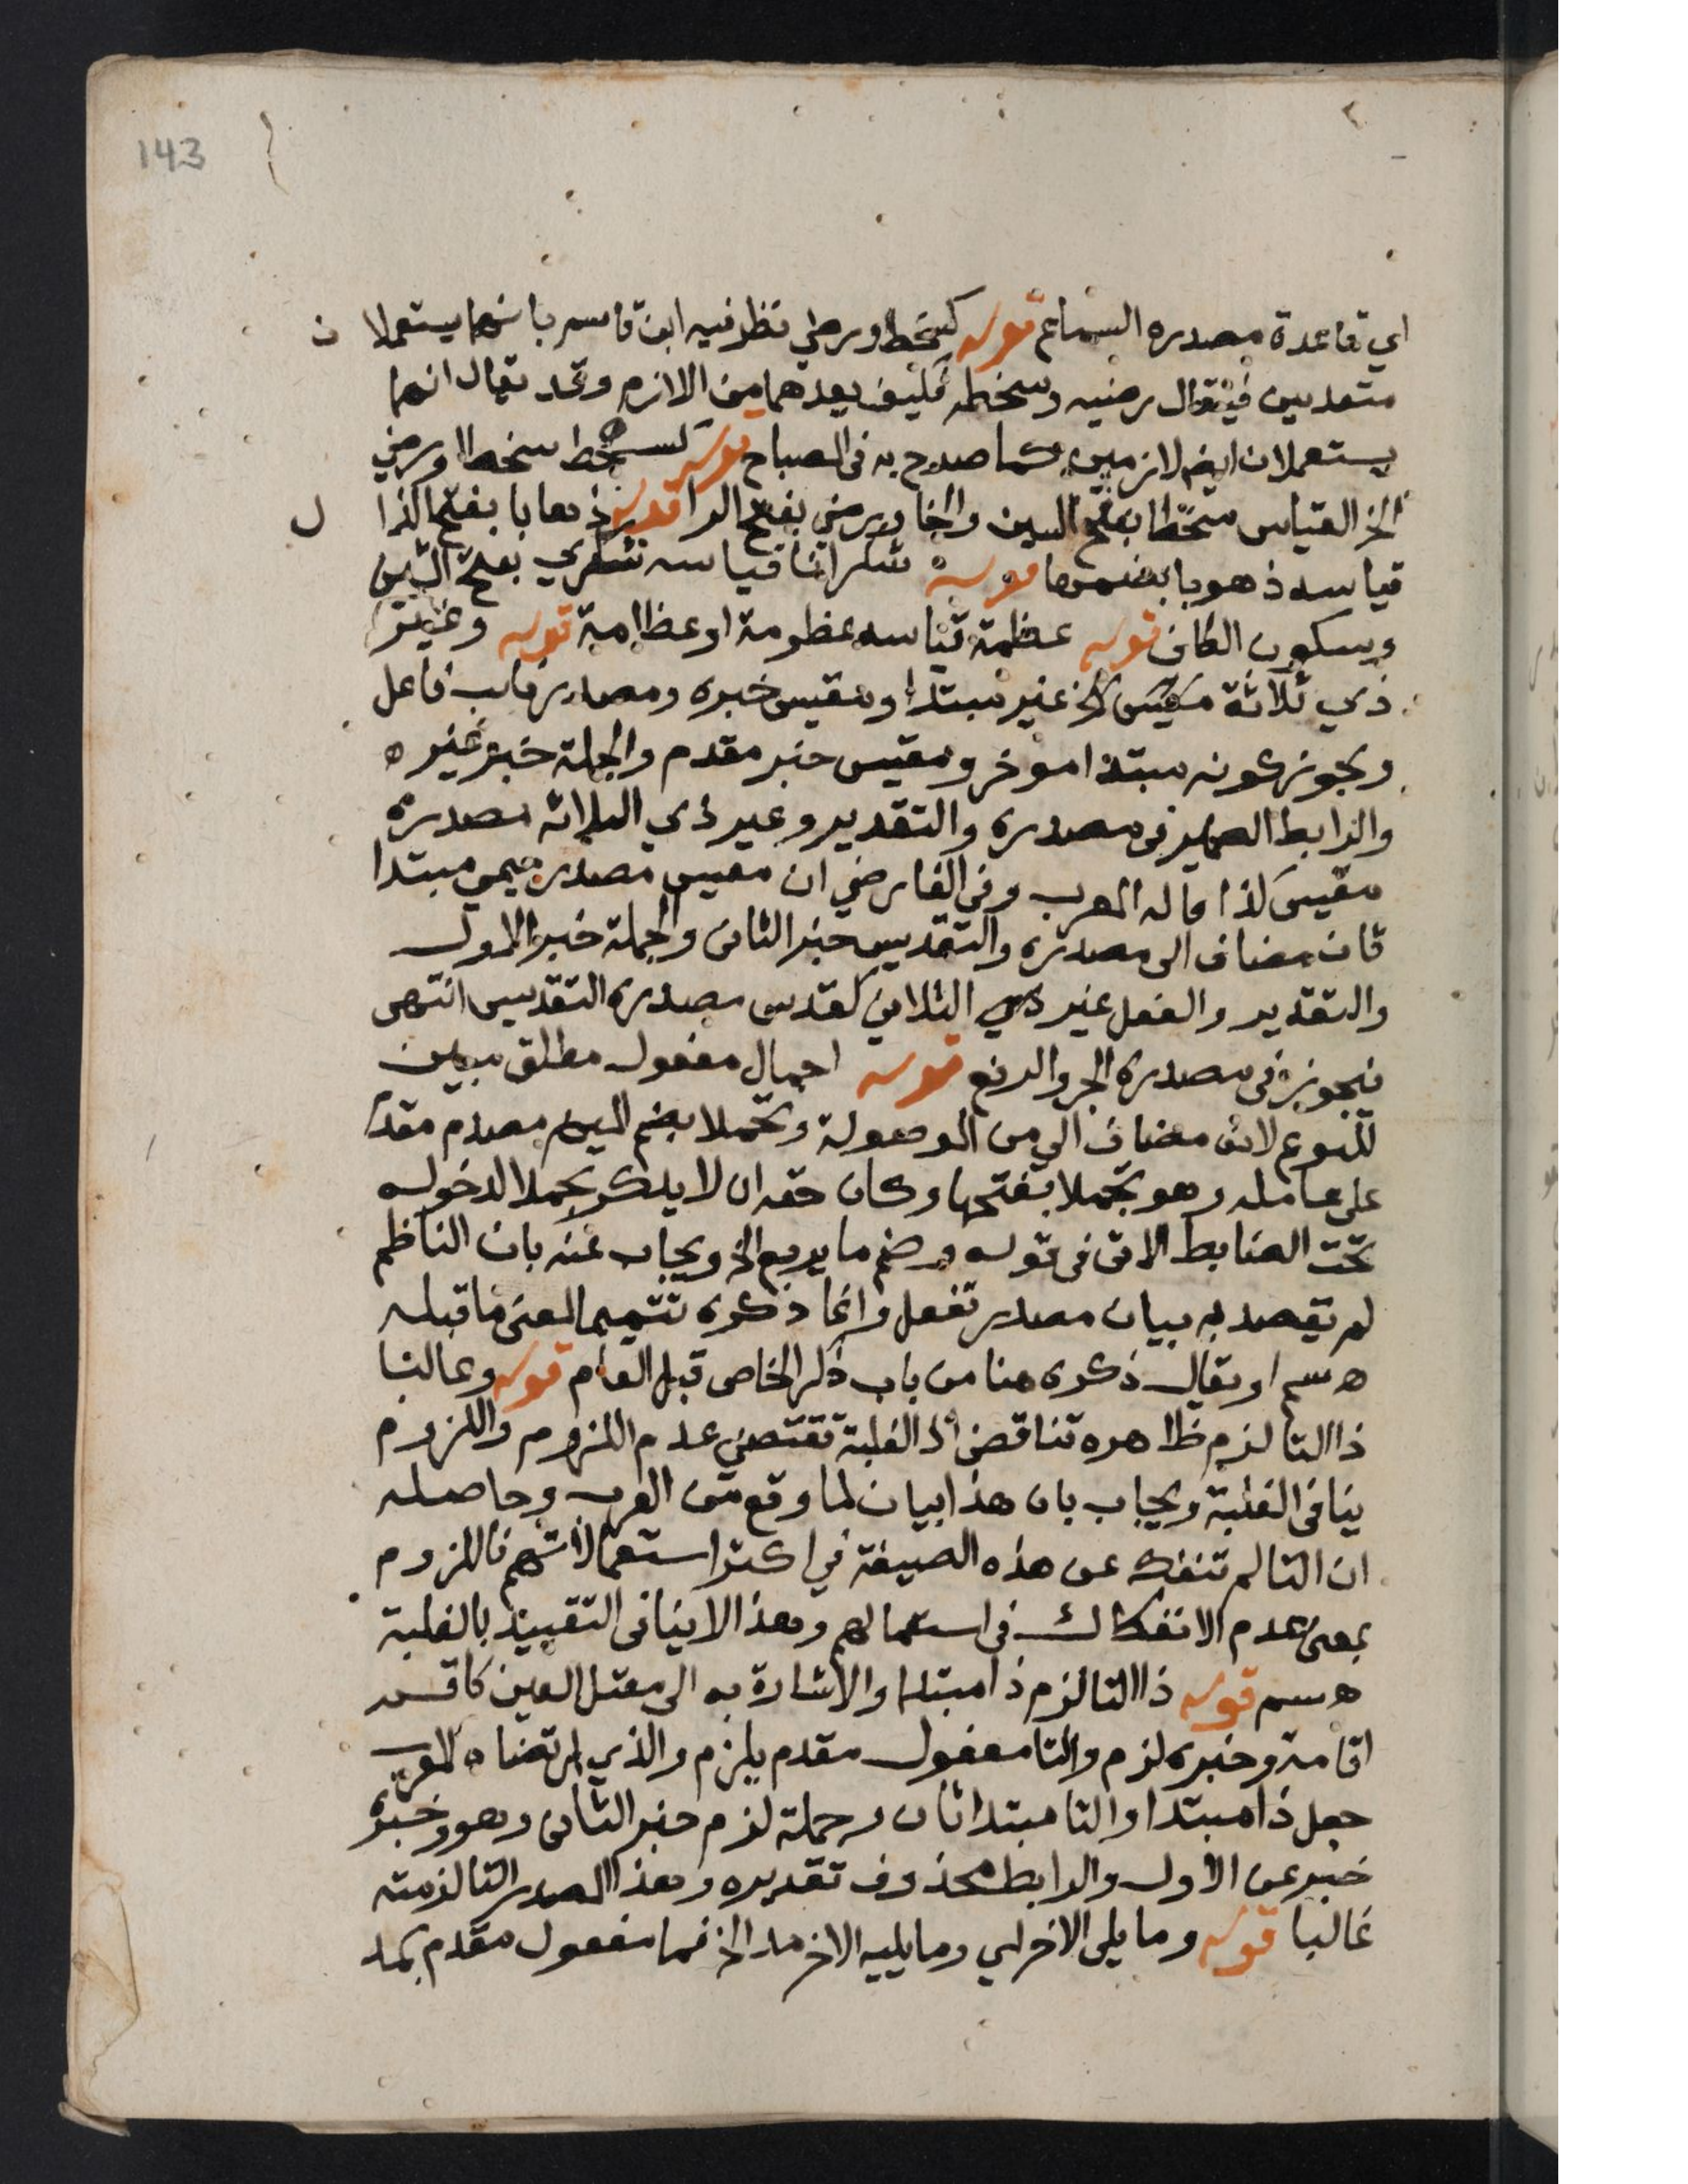 143
اي قاعدة مصدره السماع قوله كسخط ورضي نظر فيه ابن قاسم بانهما يستعملا ن
متعديين فيقال رضيه وسخطه فكيف يعدهما من الازم وقد يقال انهما
يستعملان ايضم لازمين كما صدح به في المصباح قوله كسخط سخطا ورضي
الخ القياس سخطا بفتح السين والخا ورضي بفتح الرا قوله ذهابا بفتح الذا ل
قياسه ذهوبا بضمها قوله شكرانا قياسه شكري بفتح الشين
وسكون الكاف قوله عظمة قياسه عظومة او عظامة قوله وغير
ذي ثلاثة مقيس الخ غير مبتدا ومقيس خبره ومصدر نايب فاعل
ويجوز كونه مبتدا موخر ومقيس خبر مقدم والجملة خبر غير ه
والرابط الضمير في مصدره والتقدير وغير ذي الثلاثة مصدره
مقيس كذا قاله المعرب وفي الفارضي ان مقيس مصدر ميمي مبتدا
ثان مضاف الى مصدره والتقديس خبر الثاني والجملة خبر الاول
والتقدير والفعل غير ذي الثلاثي كقدس مصدره التقديس انتهى
فيجوز في مصدره الجر والرفع قوله اجمال مفعول مطلق مبين
للنوع لانه مضاف الى من الموصولة وتجملا بضم الميم مصدم مقدم
على عامله وهو تجملا بفتحها وكان حقه ان لا يذكر تجملا لدخوله
تحت الضابط الاتي في قوله وضم ما يربع الخ ويجاب عنه بان الناظم
لم يقصد به بيان مصدر تفعل وانما ذكره تتميما لمعنى ما قبله
ه سم او يقال ذكره هنا من باب ذكر الخاص قبل العام قوله وغالبا
ذا التا لزم ظاهره تناقض اذ الغلبة تقتضي عدم اللزوم واللزوم
ينافي الغلبة ويجاب بان هذا بيان لما وقع من العرب وحاصله
ان التا لم تنفك عن هذه الصيغة في اكثر استعمالاتهم فاللزوم
بمعنى عدم الانفكاك في استعمالهم وهذا لا ينافي التقييد بالغلبة
ه سم قوله ذا التا لزم ذا مبتدا والاشارة به الى معتل العين كاقم
اقامة وخبره لزم والتا مفعول مقدم بلزم والذي ارتضاه المعرب
جعل ذا مبتدا والتا مبتدا ثان وجملة لزم خبر الثاني وهو وخبره
خبر عن الاول والرابط محذوف تقديره وهذا المصدر التا لزمته
غالبا قوله وما يلي الاخر اي وما يليه الاخر مد الخ فما مفعول مقدم بمد